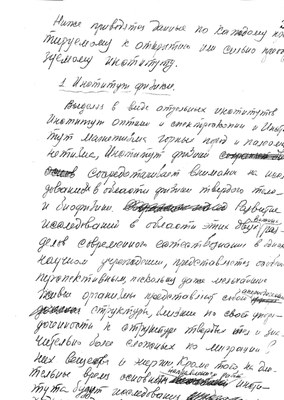 Ниже приводятся данные по каждому
тируемому к открытию или
зуемому институту.
1. Институт физики.
Выделив в виде отдельных институтов
Институт оптики и спектроскопии и Инсти
тут магнетизма горных пород и палеомаг
нетизма, Институт физики
сосредотачивает внимание на иссле
дованиях в области физики твердого тела
и биофизики. Развитие
исследований в области этих двух раз
делов современного естествознания в одном
научном учреждении, представляется
перспективным, поскольку даже
живые организмы представляют собой
структуры, близкие по своей упоря
доченности к структуре твердых тел и зна
чительно более сложных по миграции в
них веществ и энергии. Кроме того на дли
тельное время основным инсти
тута будут исследования